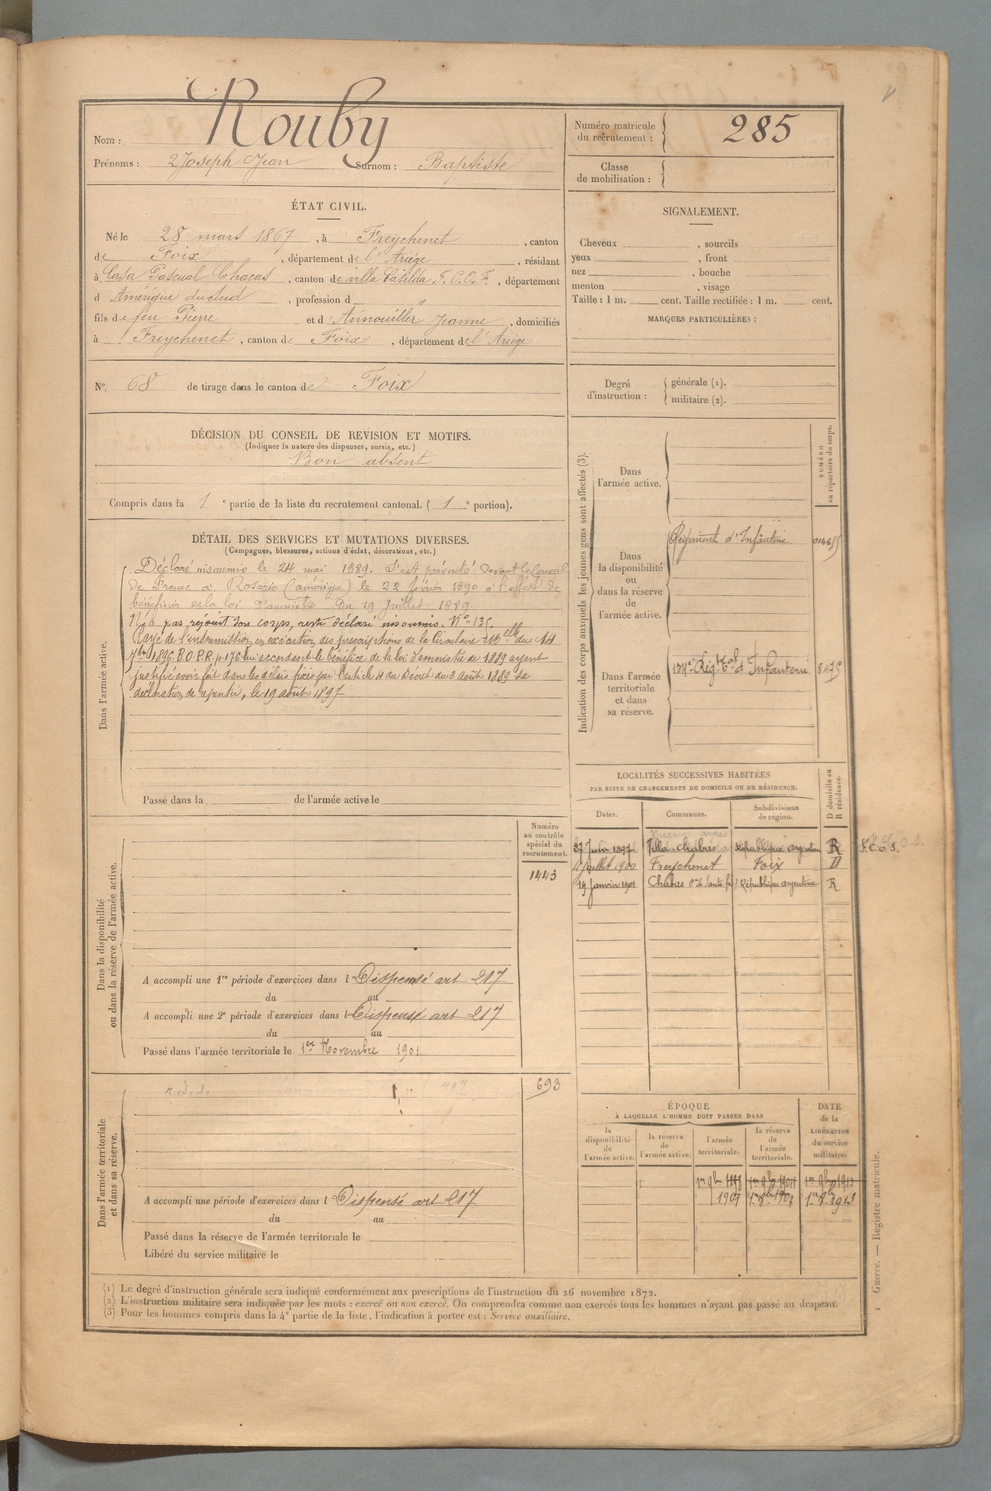 Rouby
Nom :
Prénoms : Joseph Jean Surnom : Baptiste
Numéro matricule du recrutement : 285
Classe de mobilisation :
ÉTAT CIVIL.
Né le 28 mars 1867, à Freychenet, canton
de Foix, département de l'Ariège, résidant
à Casa Pascual Chacas, canton de villa Casilda F.C.O.F., département
d Amérique du Sud, profession d "
fils de feu Pierre et d' Annouiller Jeanne, domiciliés
à Freychenet, canton de Foix, département de l'Ariège
SIGNALEMENT.
Cheveux , sourcils
yeux , front
nez , bouche
menton , visage
Taille : 1 m. cent. Taille rectifiée : 1 m. cent.
MARQUES PARTICULIÈRES :
N° 68 de tirage dans le canton de Foix
Degré d'instruction : générale (1).
militaire (2).
DÉCISION DU CONSEIL DE REVISION ET MOTIFS.
(Indiquer la nature des dispenses, sursis, etc.)
Bon absent
Compris dans la 1e partie de la liste du recrutement cantonal. ( 1e portion).
DÉTAIL DES SERVICES ET MUTATIONS DIVERSES.
(Campagnes, blessures, actions d'éclat, décorations, etc.)
Dans l'armée active.
Déclaré insoumis le 24 mai 1889. S'est présenté devant le Consul
de France à Rosario (amérique) le 22 février 1890 à l'effet de
bénéficier de la loi d'amnistie Du 19 Juillet 1889.
N'a pas rejoint son corps, reste déclaré insoumis.
Rayé de l'insoumission, en exécution des prescriptions de la Circulaire Mlle du 14
7bre 1896 B.O.P.R. p 176 lui accordant le bénéfice de la loi d'amnistie de 1889 ayant
justifié avoir fait dans les délais fixés par l'article 4 du Décret du 3 août 1889 sa
déclaration de repentir, le 19 août 1897
Passé dans la de l'armée active le
Indication des corps auxquels les jeunes gens sont affectés (3).
NUMÉRO au répertoire du corps.
Dans l'armée active.
Dans la disponibilité ou dans la réserve de l'armée active.
Régiment d'Infanterie
Dans l'armée territoriale et dans sa réserve.
134e Régt tal d'Infanterie
LOCALITÉS SUCCESSIVES HABITÉES
PAR SUITE DE CHANGEMENTS DE DOMICILE OU DE RÉSIDENCE.
Dates. Communes. Subdivisions de région. D domicile ou R résidence.
27 Juin 1897 Villa chabas République argentine R
Juillet 1900 Freychenet Foix D
19 Janvier 1901 Chabas République argentine R
Dans la disponibilité ou dans la réserve de l'armée active.
Numéro au contrôle spécial du recrutement.
1443
A accompli une 1re période d'exercices dans l Dispensé art 217
du au
A accompli une 2e période d'exercices dans l Dispensé art 217
du au
Passé dans l'armée territoriale le 1er Novembre 1901
Dans l'armée territoriale et dans sa réserve.
693
A accompli une période d'exercices dans l Dispensé art 217
du au
Passé dans la réserve de l'armée territoriale le
Libéré du service militaire le
ÉPOQUE
À LAQUELLE L'HOMME DOIT PASSER DANS
la disponibilité de l'armée active.
la réserve de l'armée active.
l'armée territoriale.
la réserve de l'armée territoriale.
DATE de la LIBÉRATION du service militaire.
1901
(1) Le degré d'instruction générale sera indiqué conformément aux prescriptions de l'instruction du 26 novembre 1872.
(2) L'instruction militaire sera indiquée par les mots : exercé ou non exercé. On comprendra comme non exercés tous les hommes n'ayant pas passé au drapeau.
(3) Pour les hommes compris dans la 4e partie de la liste, l'indication à porter est : Service auxiliaire.
Guerre. — Registre matricule.